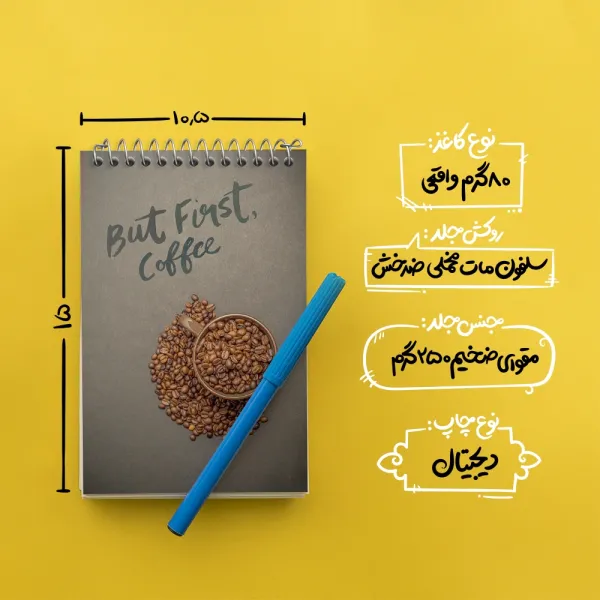 ۱۰٫۵
۱۵
But First,
Coffee
نوع کاغذ:
۸۰گرم واقعی
روکش جلد:
سلفون مات مخملی ضدخش
جنس جلد:
مقوای ضخیم ۲۵۰گرم
نوع چاپ:
دیجیتال